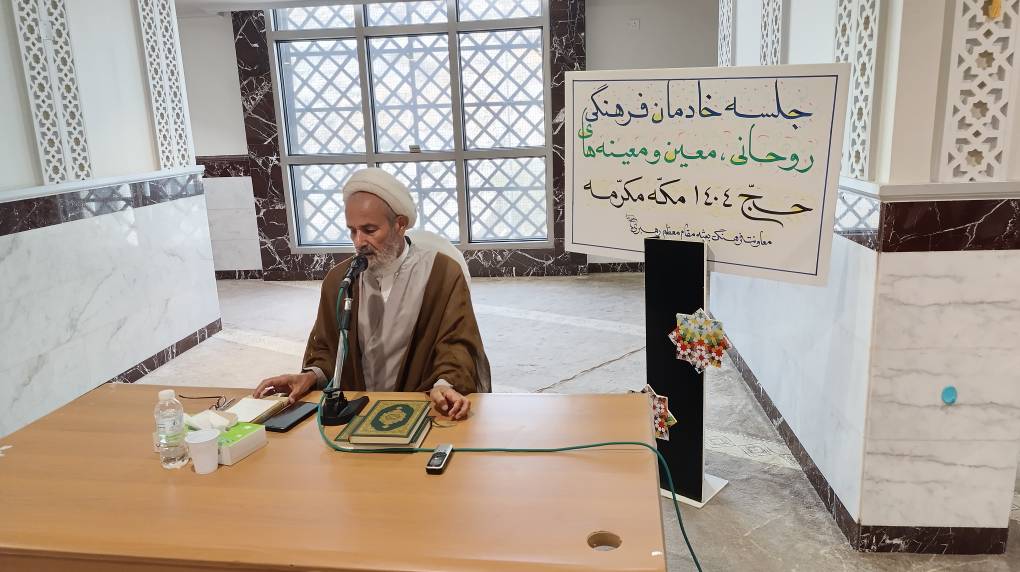 جلسه خادمان فرهنگی
روحانی، معین و معینه‌های
حجّ ۱۴۰۴ مکّه مکرّمه
معاونت فرهنگی بعثه مقام معظم رهبری